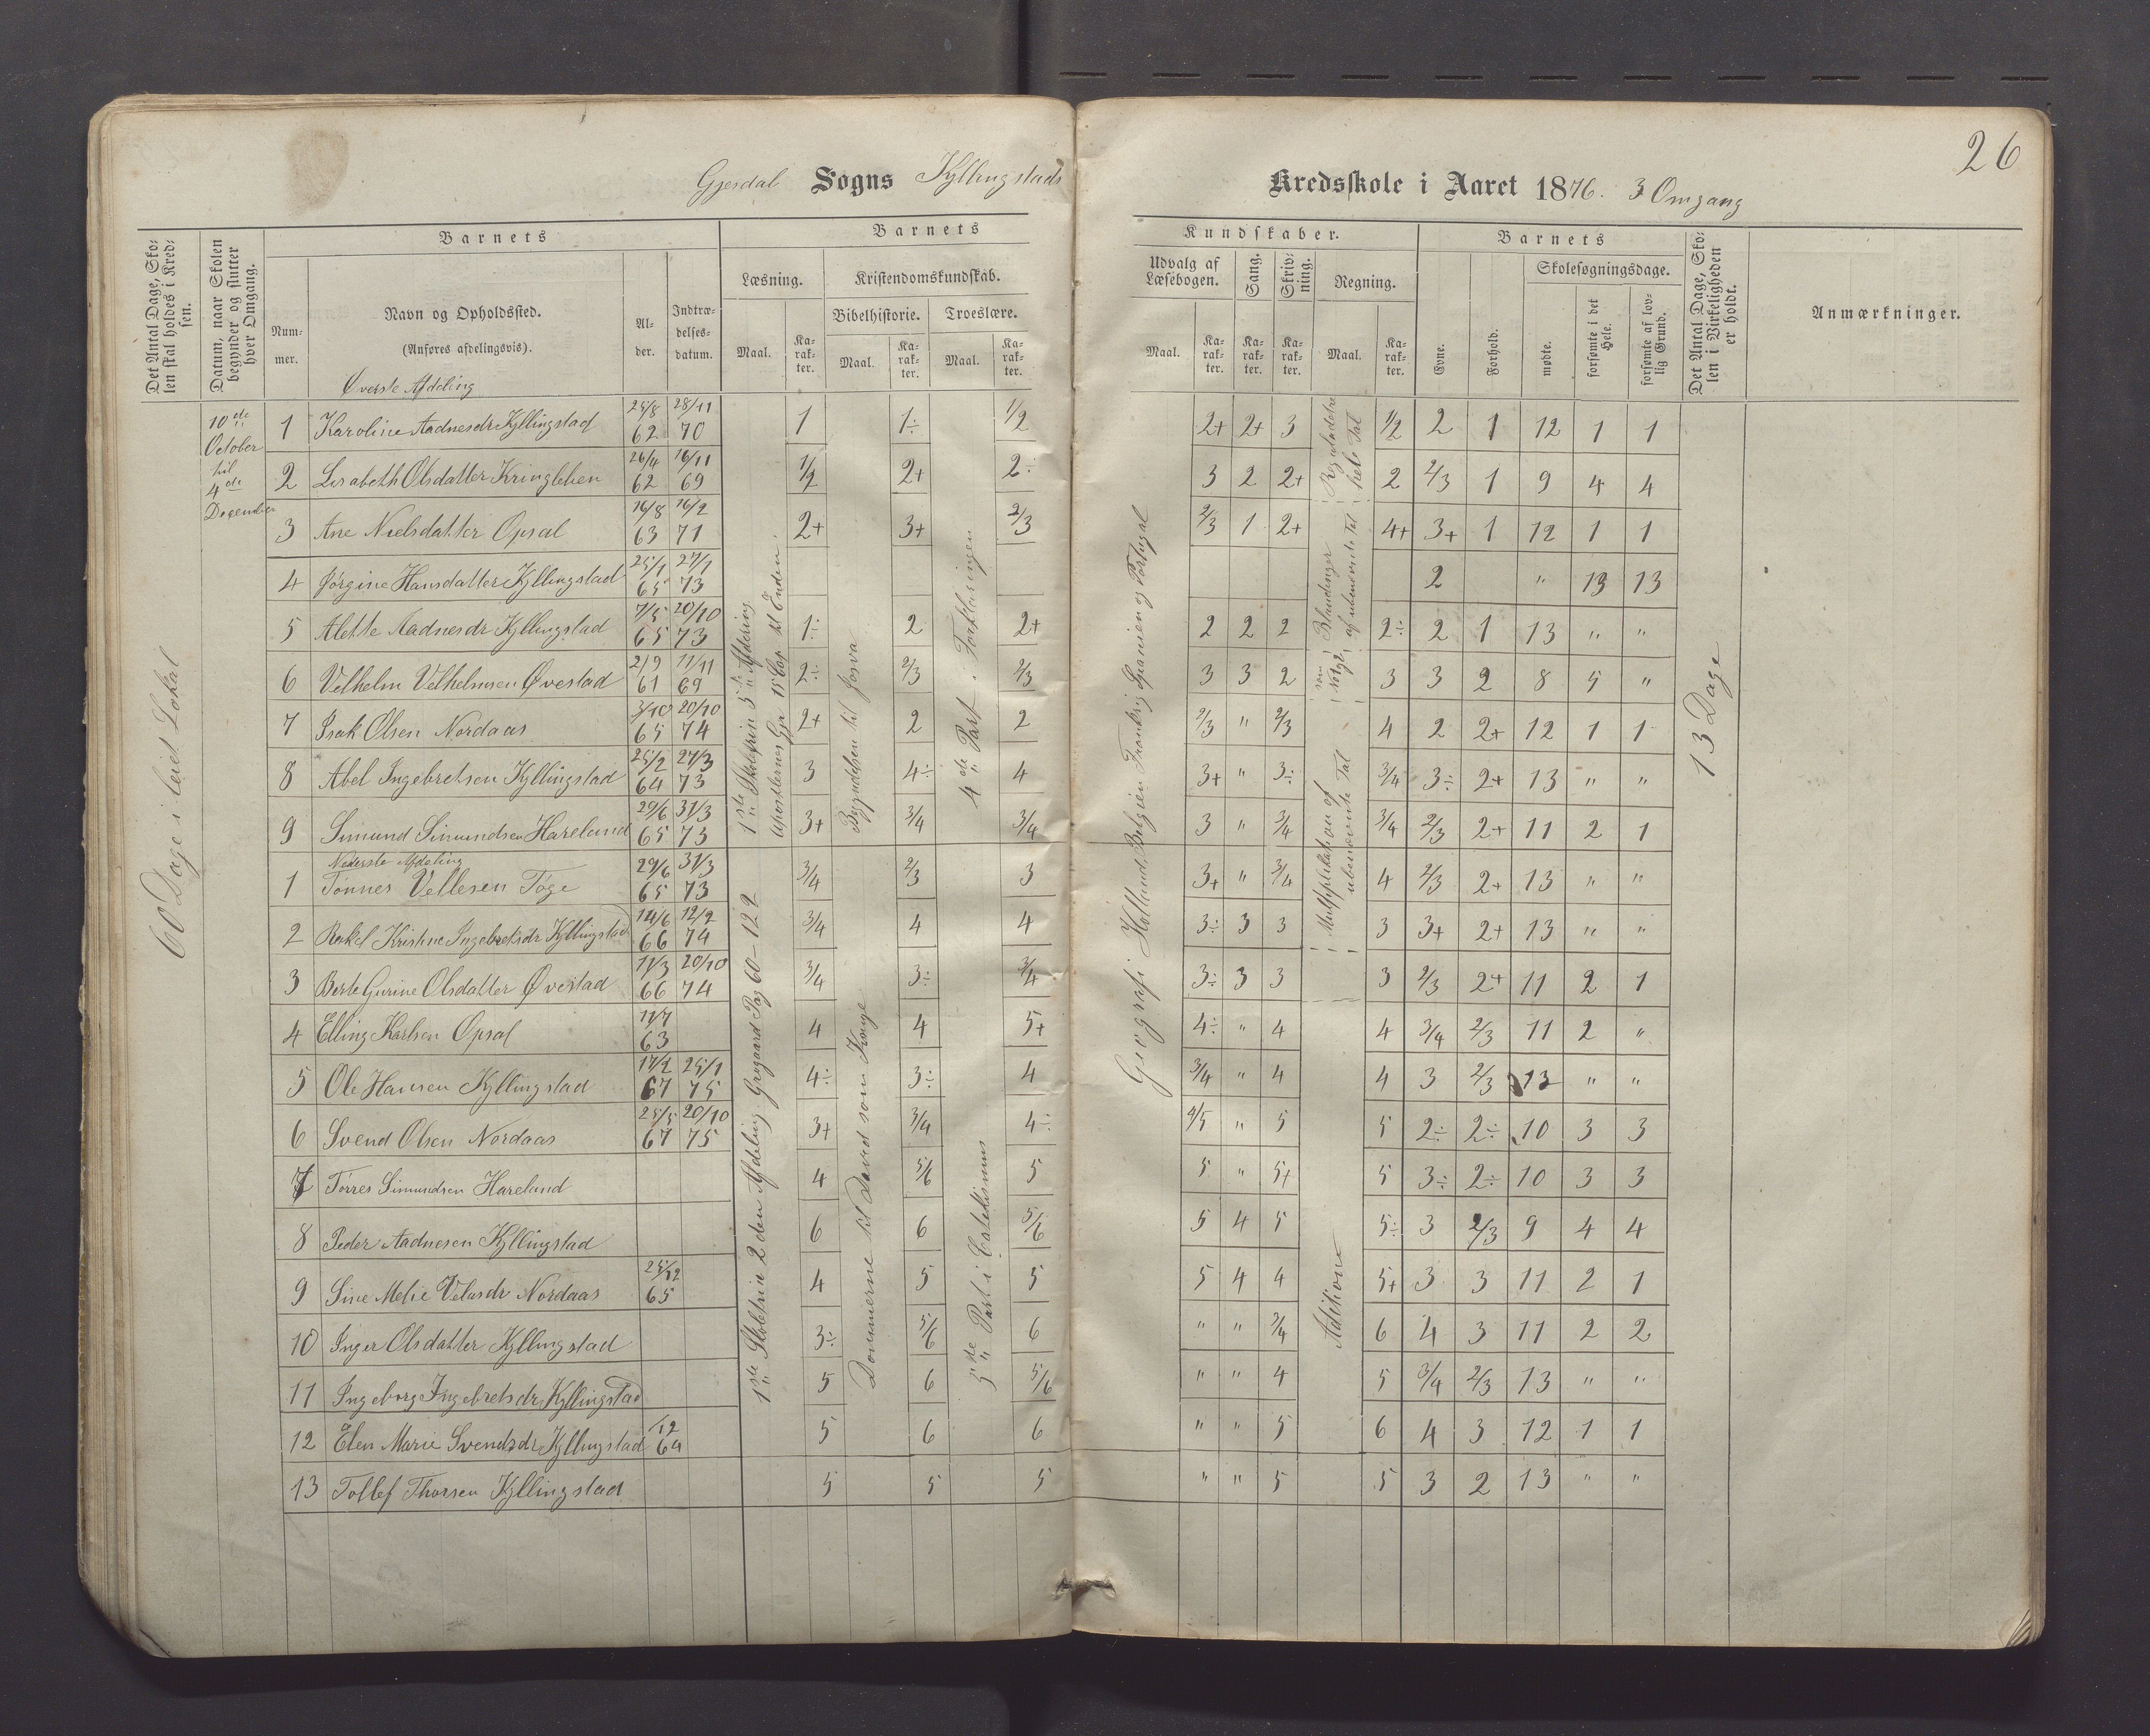 26
Gjesdal Sogns Kyllingstads Kredsskole i Aaret 1876. 3 Omgang
Det Antal Dage, Skolen skal holdes i Kredsen.
Datum, naar Skolen begynder og slutter hver Omgang.
Barnets
Nummer.
Navn og Opholdssted.
(Anføres afdelingsvis).
Alder.
Indtrædelsesdatum.
Barnets Kundskaber.
Læsning.
Maal.
Karakter.
Kristendomskundskab.
Bibelhistorie.
Maal.
Karakter.
Troeslære.
Maal.
Karakter.
Udvalg af Læsebogen.
Maal.
Karakter.
Sang.
Karakter.
Skrivning.
Karakter.
Regning.
Maal.
Karakter.
Barnets
Evne.
Forhold.
Skolesøgningsdage.
mødte.
forsømte i det Hele.
forsømte af lovlig Grund.
Det Antal Dage, Skolen i Virkeligheden er holdt.
Anmærkninger.
60 Dage i leiet Lokal
10de October til 4de December
13 Dage
Øverste Afdeling
1 Karoline Aadnesdr Kyllingstad 25/8 62 28/11 70 1 1÷ 1/2 2+ 2+ 3 1/2 2 1 12 1 1
2 Lisabeth Olsdatter Kringleben 26/4 62 16/11 69 1/2 2+ 2÷ 3 2 2+ 2 2/3 1 9 4 4
3 Ane Nielsdatter Opsal 16/8 63 16/2 71 2+ 3+ 2/3 2/3 1 2+ 4+ 3+ 1 12 1 1
4 Jørgine Hansdatter Kyllingstad 25/1 65 27/1 73 2 " 13 13
5 Alette Aadnesdr Kyllingstad 7/5 65 20/10 73 1÷ 2 2+ 2 2 2 2÷ 2 1 13 " "
6 Velhelm Velhelmsen Øvestad 2/9 61 11/11 69 2÷ 2/3 2/3 3 3 2 3 3 2 8 5 "
7 Isak Olsen Nordaas 3/10 65 20/10 74 2+ 2 2 2/3 " 2/3 4 2 2+ 12 1 1
8 Abel Ingebretsen Kyllingstad 25/2 64 27/3 73 3 4÷ 4 3+ " 3÷ 3/4 3÷ 2+ 13 " "
9 Simund Simundsen Hareland 29/6 65 31/3 73 3+ 3/4 3/4 3 " 3/4 3/4 2/3 2+ 11 2 1
Nederste Afdeling
1 Tønnes Vellesen Tøge 29/6 65 31/3 73 3/4 2/3 3 3+ " 3/4 4 2/3 2+ 13 " "
2 Rakel Kristine Ingebretsdr Kyllingstad 14/6 66 12/2 74 3/4 4 4 3÷ 3 3 3 3+ 2+ 13 " "
3 Berte Gurine Olsdatter Øvestad 11/3 66 20/10 74 3/4 3÷ 3/4 3÷ 3 3 3 2/3 2+ 11 2 1
4 Elling Karlsen Opsal 11/7 63 4 4 5+ 4÷ " 4 4 3/4 2/3 11 2 "
5 Ole Hansen Kyllingstad 17/2 67 25/1 75 4÷ 3÷ 4 3/4 " 4 4 3 2/3 13 " "
6 Svend Olsen Nordaas 25/5 67 20/10 75 3+ 3/4 4÷ 4/5 " 5 5 2÷ 2÷ 10 3 3
7 Tørres Simundsen Hareland 4 5/6 5 5 " 5+ 5 3÷ 2÷ 10 3 3
8 Peder Aadnesen Kyllingstad 6 6 5/6 5 4 5 5÷ 3 2/3 9 4 4
9 Sine Melie Velasdr Nordaas 25/12 65 4 5 5 5 4 4 5+ 3 3 11 2 1
10 Inger Olsdatter Kyllingstad 3÷ 5/6 6 " " 3/4 6 4 3 11 2 2
11 Ingeborg Ingebretsdr Kyllingstad 5 6 5/6 " " 4 5 3/4 2/3 13 " "
12 Elen Marie Svendsdr Kyllingstad /12 64 5 6 6 " " 5 6 4 3 12 1 1
13 Tollef Thorsen Kyllingstad 5 5 5 " " 5 5 3 2 13 " "
1ste Skoletrin 3die Afdeling
Apostlernes Gj. 15 Cap til Enden.
1ste Skoletrin 2den Afdeling. Gregaard Pag 60-122
Begyndelsen til Josva
Dommerne til David som Konge
4de Part i Forklaringen
3de Part i Catekismus
Geografi Holland, Belgien Frankrig Spanien og Portugal
hele Tal
af ubenævnte Tal
Multiplikation af ubenævnte Tal
Addition